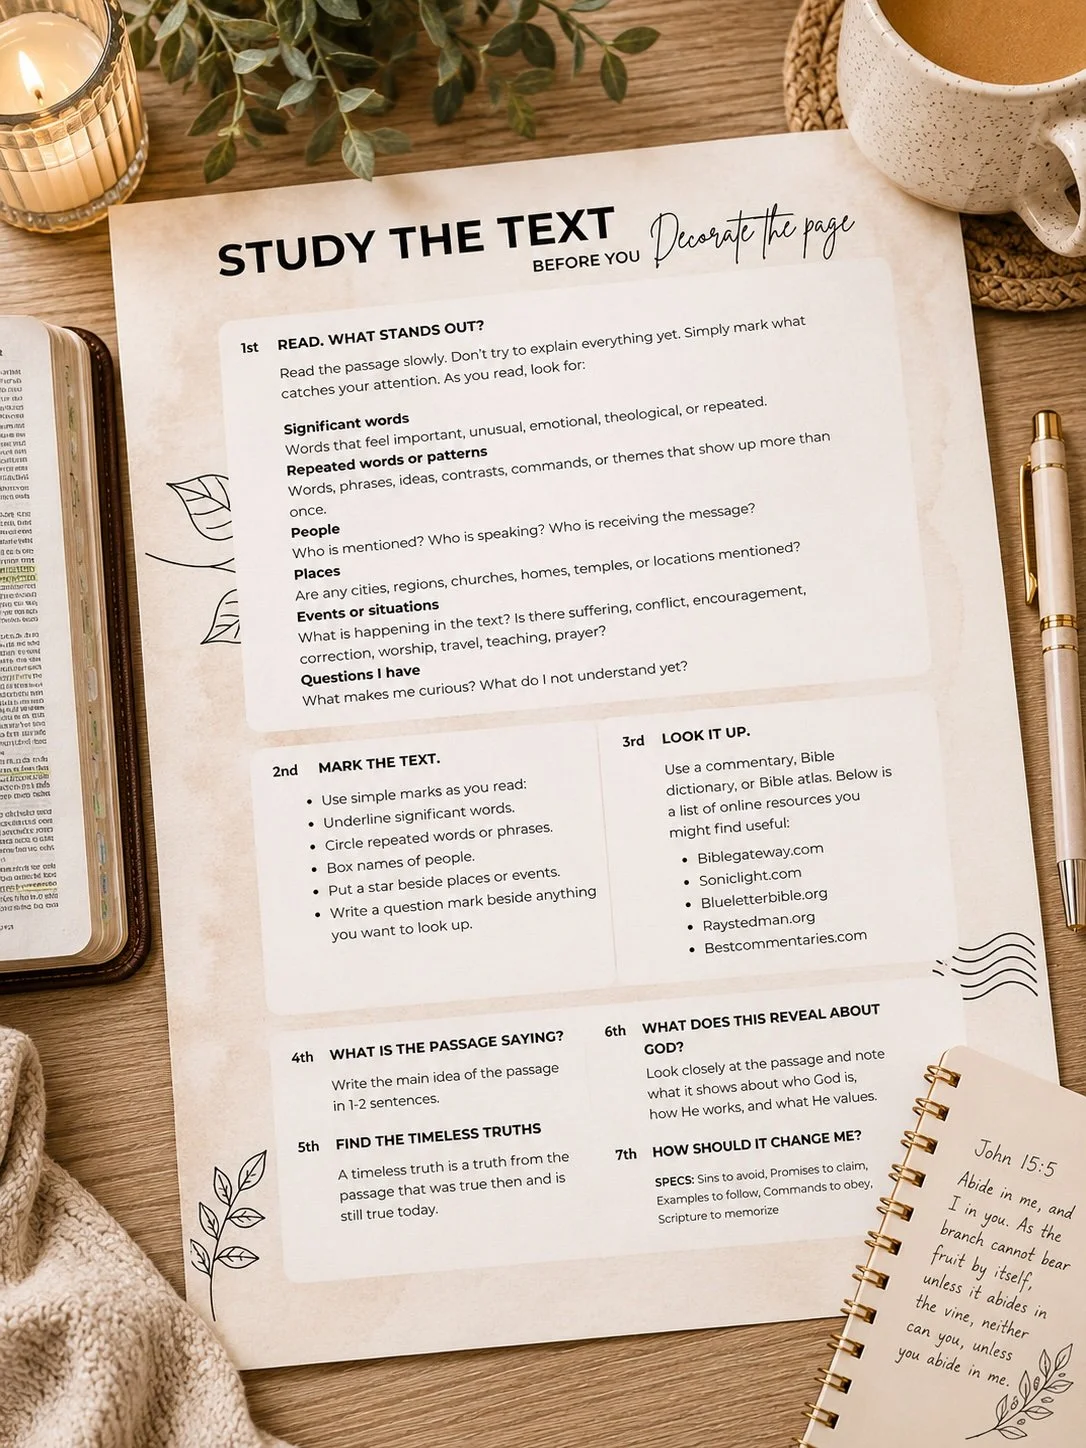 STUDY THE TEXT
BEFORE YOU Decorate the page
1st READ. WHAT STANDS OUT?
Read the passage slowly. Don't try to explain everything yet. Simply mark what
catches your attention. As you read, look for:
Significant words
Words that feel important, unusual, emotional, theological, or repeated.
Repeated words or patterns
Words, phrases, ideas, contrasts, commands, or themes that show up more than
once.
People
Who is mentioned? Who is speaking? Who is receiving the message?
Places
Are any cities, regions, churches, homes, temples, or locations mentioned?
Events or situations
What is happening in the text? Is there suffering, conflict, encouragement,
correction, worship, travel, teaching, prayer?
Questions I have
What makes me curious? What do I not understand yet?
2nd MARK THE TEXT.
• Use simple marks as you read:
• Underline significant words.
• Circle repeated words or phrases.
• Box names of people.
• Put a star beside places or events.
• Write a question mark beside anything
you want to look up.
3rd LOOK IT UP.
Use a commentary, Bible
dictionary, or Bible atlas. Below is
a list of online resources you
might find useful:
• Biblegateway.com
• Soniclight.com
• Blueletterbible.org
• Raystedman.org
• Bestcommentaries.com
4th WHAT IS THE PASSAGE SAYING?
Write the main idea of the passage
in 1-2 sentences.
5th FIND THE TIMELESS TRUTHS
A timeless truth is a truth from the
passage that was true then and is
still true today.
6th WHAT DOES THIS REVEAL ABOUT
GOD?
Look closely at the passage and note
what it shows about who God is,
how He works, and what He values.
7th HOW SHOULD IT CHANGE ME?
SPECS: Sins to avoid, Promises to claim,
Examples to follow, Commands to obey,
Scripture to memorize
John 15:5
Abide in me, and
I in you. As the
branch cannot bear
fruit by itself,
unless it abides in
the vine, neither
can you, unless
you abide in me.